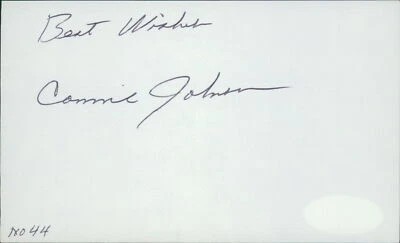 Best Wishes
Connie Johnson
No 44